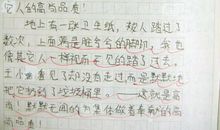 它人的高尚品质!
地上有一张卫生纸,被人踏过了
数次,上面满是脏兮兮的脚印,我也
像其它人一样视而不见的踏了过去。
王小 看见了却没有走过而是默默地
把它 到了垃圾桶里。——这就是高
尚!默默无闻的为集体做着奉献的高
尚品质!